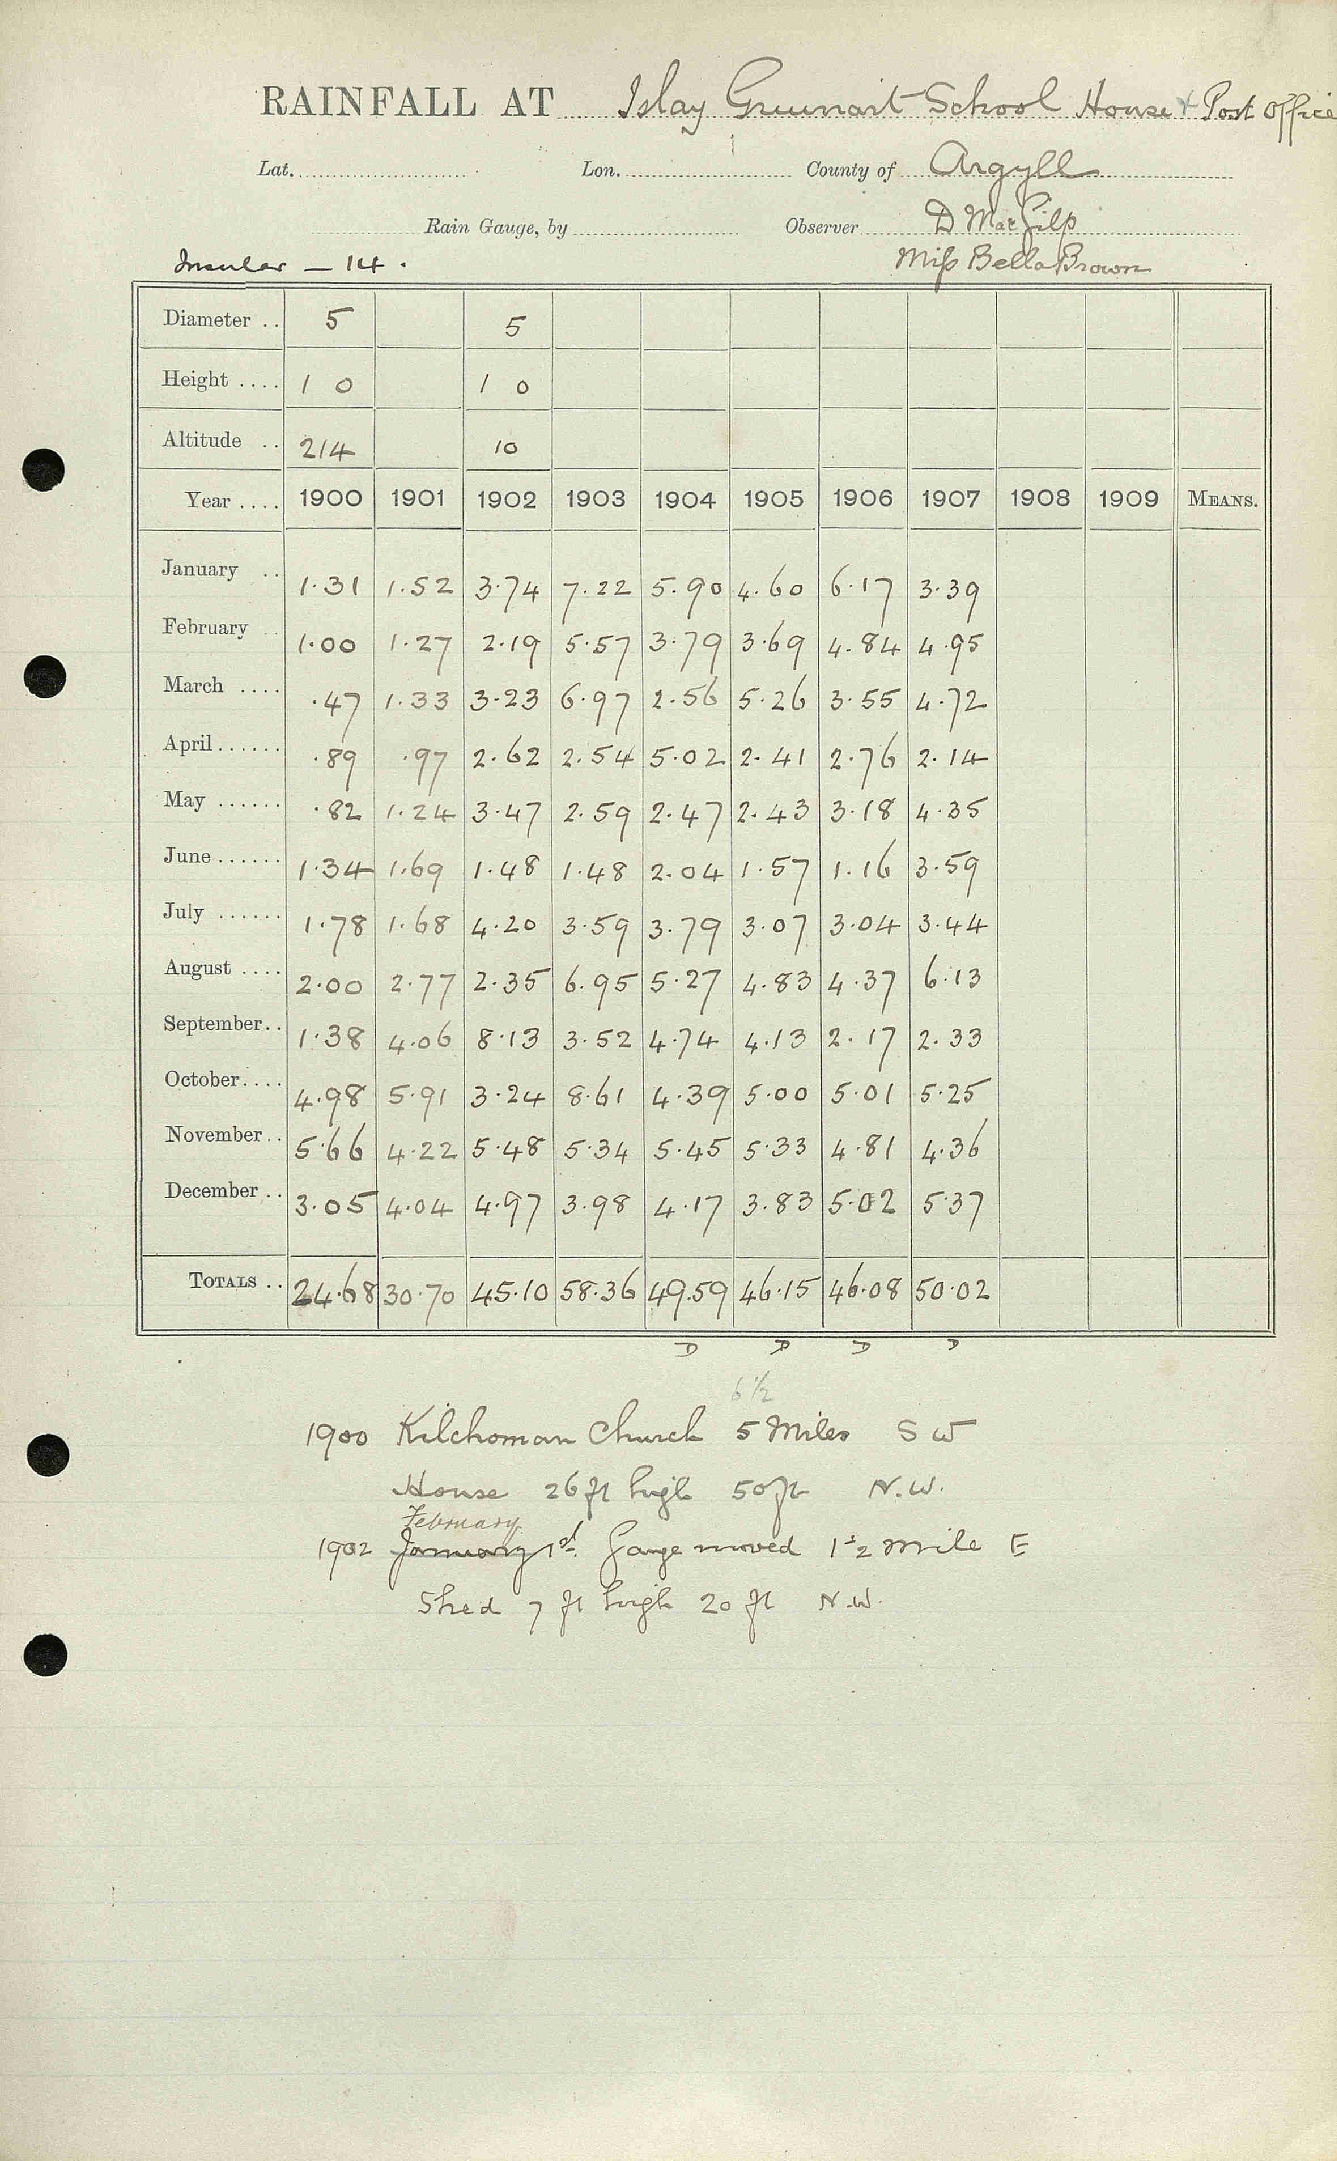 RAINFALL AT Islay Gruinart School House & Post Office
Lat. Lon. County of Argyll
Rain Gauge, by Observer D MacGilp
Insular — 14. Miss Bella Brown
Diameter .. 5 5
Height .... 1 0 1 0
Altitude .. 214 10
Year .... 1900 1901 1902 1903 1904 1905 1906 1907 1908 1909 MEANS.
January .. 1.31 1.52 3.74 7.22 5.90 4.60 6.17 3.39
February .. 1.00 1.27 2.19 5.57 3.79 3.69 4.84 4.95
March .... .47 1.33 3.23 6.97 2.56 5.26 3.55 4.72
April ...... .89 .97 2.62 2.54 5.02 2.41 2.76 2.14
May ...... .82 1.24 3.47 2.59 2.47 2.43 3.18 4.35
June ...... 1.34 1.69 1.48 1.48 2.04 1.57 1.16 3.59
July ...... 1.78 1.68 4.20 3.59 3.79 3.07 3.04 3.44
August .... 2.00 2.77 2.35 6.95 5.27 4.83 4.37 6.13
September .. 1.38 4.06 8.13 3.52 4.74 4.13 2.17 2.33
October .... 4.98 5.91 3.24 8.61 4.39 5.00 5.01 5.25
November .. 5.66 4.22 5.48 5.34 5.45 5.33 4.81 4.36
December .. 3.05 4.04 4.97 3.98 4.17 3.83 5.02 5.37
TOTALS .. 24.68 30.70 45.10 58.36 49.59 46.15 46.08 50.02
D D D D
6 1/2
1900 Kilchoman Church 5 Miles S W
House 26 ft high 50 ft N.W.
February
1902 January 1st. Gauge moved 1 1/2 mile E
Shed 7 ft high 20 ft N.W.